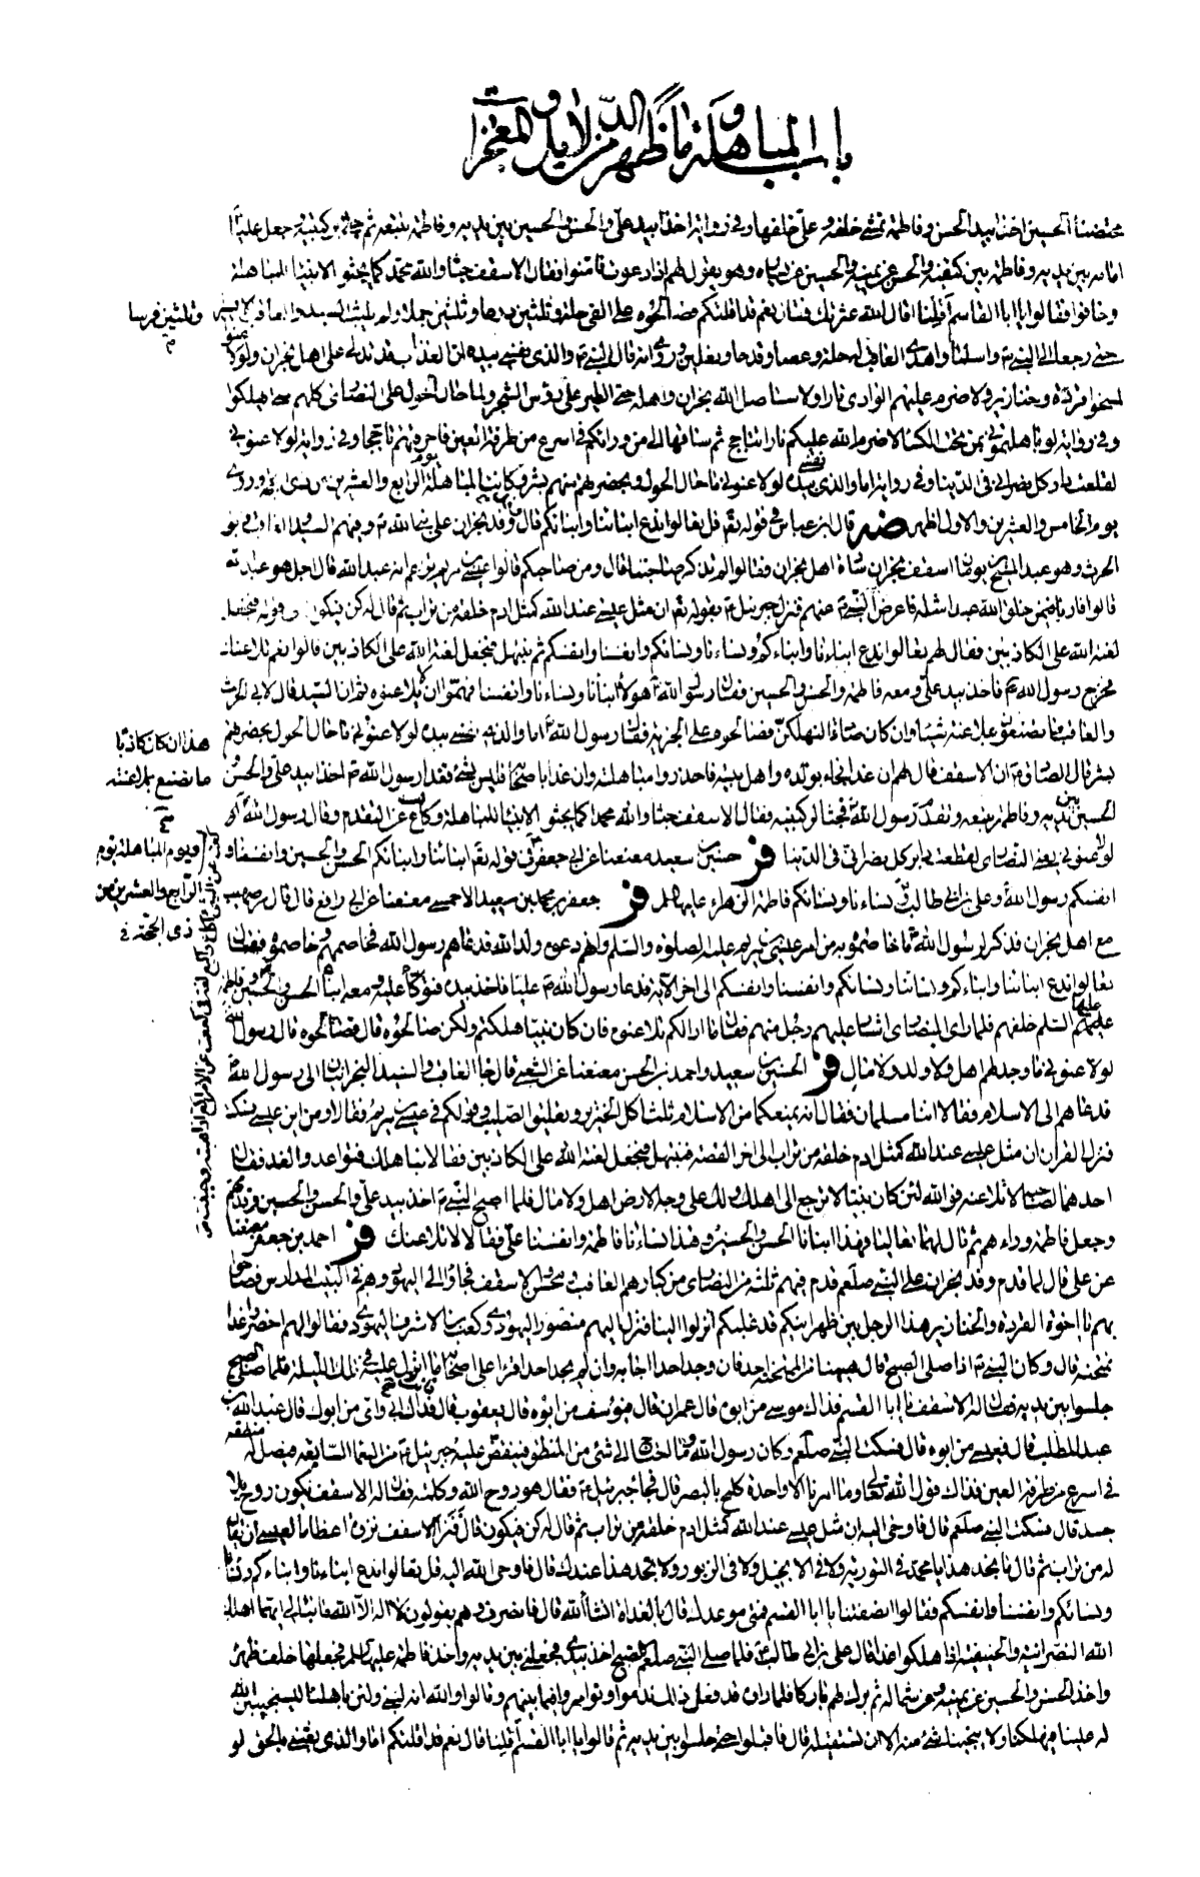 باب المباهلة وما ظهر من الدلايل و المعجزات
محتضنا الحسين اخذا بيد الحسن وفاطمة تمشي خلفه وعلي خلفها وفي رواية اخذا بيد علي والحسن والحسين بين يديه وفاطمة تتبعه ثم جثا بركبتيه جعل عليا
امامه بين يديه وفاطمة بين كتفيه والحسن عن يمينه والحسين عن يساره وهو يقول لهم اذا دعوت فامنوا فقال الاسقف جثا والله محمد كما يجثو الانبيا للمباهلة
وخافوا فقالوا يا ابا القاسم اقلنا اقال الله عثرتك فقال نعم قد اقلتكم فصالحوه على الفي حلة وثلثين درعا وثلثين جملا ولم يلبث السيد والعاقب الا يسيرا
وثلثين فرسا
حتى رجعا الى النبي واسلما واهدى العاقب له حلة وعصا وقدحا ونعلين وروي انه قال النبي والذي نفسي بيده ان العذاب قد تدلى على اهل نجران ولو لاعنوا
لمسخوا قردة وخنازير ولاضرم عليهم الوادي نارا ولاستاصل الله نجران واهله حتى الطير على رؤس الشجر ولما حال الحول على النصارى كلهم حتى هلكوا
وفي رواية لو باهلتموني بمن تحت الكسا لاضرم الله عليكم نارا تتاجج ثم ساقها الى من ورائكم في اسرع من طرفة العين فاحرقتهم تاججا وفي رواية لو لاعنوني
لقطعت دابر كل نصراني في الدنيا وفي رواية اما والذي نفسي بيده لو لاعنوني ما حال الحول وبحضرتهم منهم بشر وكانت المباهلة يوم الرابع والعشرين من ذي الحجة وروي
يوم الخامس والعشرين والاول اظهر ضه قال ابن عباس في قوله تعالى قل تعالوا ندع ابناءنا وابناءكم قال وفد نجران على نبي الله وفيهم السيد والعاقب وابو
الحرث وهو عبد المسيح بن يونان اسقف نجران سادة اهل نجران فقالوا لم تذكر صاحبنا قال ومن صاحبكم قالوا عيسى بن مريم تزعم انه عبد الله قال اجل هو عبد الله
قالوا فارنا فيمن خلق الله عبدا مثله فاعرض النبي عنهم فنزل جبرئيل بقوله تعالى ان مثل عيسى عند الله كمثل ادم خلقه من تراب ثم قال له كن فيكون وقوله فنجعل
لعنة الله على الكاذبين فقال لهم تعالوا ندع ابناءنا وابناءكم ونساءنا ونساءكم وانفسنا وانفسكم ثم نبتهل فنجعل لعنة الله على الكاذبين قالوا نعم نلاعنك
فخرج رسول الله فاخذ بيد علي ومعه فاطمة والحسن والحسين فقال رسول الله هؤلاء ابناءنا ونساءنا وانفسنا فهموا ان يلاعنوه ثم ان السيد قال لابي الحرث
والعاقب ما تصنعون بملاعنته شيئا وان كان صادقا لنهلكن فصالحوه على الجزية فقال رسول الله اما والذي نفسي بيده لو لاعنوني ما حال الحول بحضرتهم
هذا ان كان كاذبا
ما نصنع بملاعنته
بشر قال الصادق ان الاسقف قال لهم ان غدا فجاء بولده واهل بيته فاحذروا مباهلته وان غدا باصحابه فليس بشيء فغدا رسول الله اخذا بيد علي والحسن
الحسين بين يديه وفاطمة تتبعه وتقدم رسول الله فجثا لركبتيه فقال الاسقف جثا والله محمد كما يجثو الانبيا للمباهلة وكاع عن التقدم وقال رسول الله
لو لاعنوني يعني النصارى لقطعت دابر كل نصراني في الدنيا فر حسين بن سعيد معنعنا عن ابي جعفر في قوله تعالى ابناءنا وابناءكم الحسن والحسين وانفسنا و
ويوم المباهلة يوم
الرابع والعشرين من
ذي الحجة
انفسكم رسول الله وعلي بن ابي طالب ونساءنا ونساءكم فاطمة الزهراء عليها السلم فر جعفر بن محمد بن سعيد الاحمسي معنعنا عن ابي رافع قال قال صهيب
مع اهل نجران فذكر لرسول الله ما خاصموه به من امر عيسى بن مريم عليه الصلوة والسلم وانهم دعوه ولد الله فدعاهم رسول الله فخاصمهم وخاصموه فقال
تعالوا ندع ابناءنا وابناءكم ونساءنا ونساءكم وانفسنا وانفسكم الى اخر الاية فدعا رسول الله عليا فاخذ بيده فتوكأ عليه ومعه ابناه الحسن والحسين وفاطمة
عليهم السلم خلفهم فلما راى النصارى اشار عليهم رجل منهم فقال ما ارى لكم تلاعنوه فان كان نبيا هلكتم ولكن صالحوه قال فصالحوه قال رسول الله
لو لاعنوني ما وجد لهم اهل ولا ولد ولا مال فر الحسين بن سعيد واحمد بن الحسن معنعنا عن الشعبي قال جاء العاقب والسيد النجرانيان الى رسول الله
فدعاهم الى الاسلام فقالا اننا مسلمان فقال انه يمنعكما من الاسلام ثلث اكل الخنزير وتعليق الصليب وقولكم في عيسى بن مريم فقالا ومن اين عيسى فسكت
فنزل القران ان مثل عيسى عند الله كمثل ادم خلقه من تراب الى اخر القصة فنبتهل فنجعل لعنة الله على الكاذبين فقالا نباهلك فتواعدوا لغد فقال
احدهما لصاحبه لا تلاعنه فوالله لئن كان نبيا لا ترجع الى اهلك ولك على وجه الارض اهل ولا مال فلما اصبح النبي اخذ بيد علي والحسن والحسين وقدمهم
وجعل فاطمة وراءهم ثم قال لهما تعاليا فهذا ابناءنا الحسن والحسين وهذا نساءنا فاطمة وانفسنا علي فقالا لا نلاعنك فر احمد بن جعفر معنعنا
عن علي قال لما قدم وفد نجران على النبي صلعم قدم فيهم ثلثة من النصارى من كبارهم العاقب ومحسن والاسقف فجاؤا الى اليهود وهم في بيت المدارس فصاحوا
بهم يا اخوة القردة والخنازير هذا الرجل بين ظهرانيكم قد غلبكم انزلوا الينا فنزل اليهم منصور اليهودي وكعب بن الاشرف اليهودي فقالوا لهم احضروا غدا
نمتحنه قال وكان النبي اذا صلى الصبح قال ههنا من الممتحنة احد فان وجد احدا اجابه وان لم يجد احدا قرا على اصحابه ما نزل عليه في تلك الليلة فلما صلى الصبح
جلسوا بين يديه فقال له الاسقف يا ابا القسم فذاك موسى من ابوه قال عمران قال فيوسف من ابوه قال يعقوب قال فداك ابي وامي من ابوك قال عبد الله بن
عبد المطلب قال فعيسى من ابوه قال فسكت النبي صلعم وكان رسول الله ربما احتاج الى شئ من المنطق فينقض عليه جبرئيل من السماء السابعة فيصل له منطقه
في اسرع من طرفة العين فذاك قول الله تعالى وما امرنا الا واحدة كلمح بالبصر قال فجاء جبرئيل فقال هو روح الله وكلمته فقال له الاسقف يكون روح بلا
جسد قال فسكت النبي صلعم قال فاوحى اليه ان مثل عيسى عند الله كمثل ادم خلقه من تراب ثم قال له كن فيكون قال فنزا الاسقف نزوة اعظاما لعيسى ان يقال
له من تراب ثم قال ما نجد هذا يا محمد في التورية ولا في الانجيل ولا في الزبور ولا نجد هذا عندك قال فاوحى الله اليه قل تعالوا ندع ابناءنا وابناءكم ونساءنا
ونساءكم وانفسنا وانفسكم فقالوا انصفتنا يا ابا القسم فمتى موعدك قال بالغداة انشاء الله قال فانصرف وهم يقولون لا اله الا الله ما نبالي ايهما اهلك
الله النصرانية والحنيفية اذا هلكوا غدا قال علي بن ابي طالب فلما صلى النبي صلعم الصبح اخذ بيدي فجعلني بين يديه واخذ فاطمة عليها السلم فجعلها خلف ظهره
واخذ الحسن والحسين عن يمينه وعن شماله ثم برك لهم باركا فلما راوه قد فعل ذلك ندموا وتوامروا فيما بينهم وقالوا والله انه لنبي ولئن باهلنا ليستجيبن الله
له علينا فيهلكنا ولا ينجينا شئ منه الا ان نستقيله قال فاقبلوا حتى جلسوا بين يديه ثم قالوا يا ابا القسم اقلنا قال نعم قد اقلتكم اما والذي بعثني بالحق لو